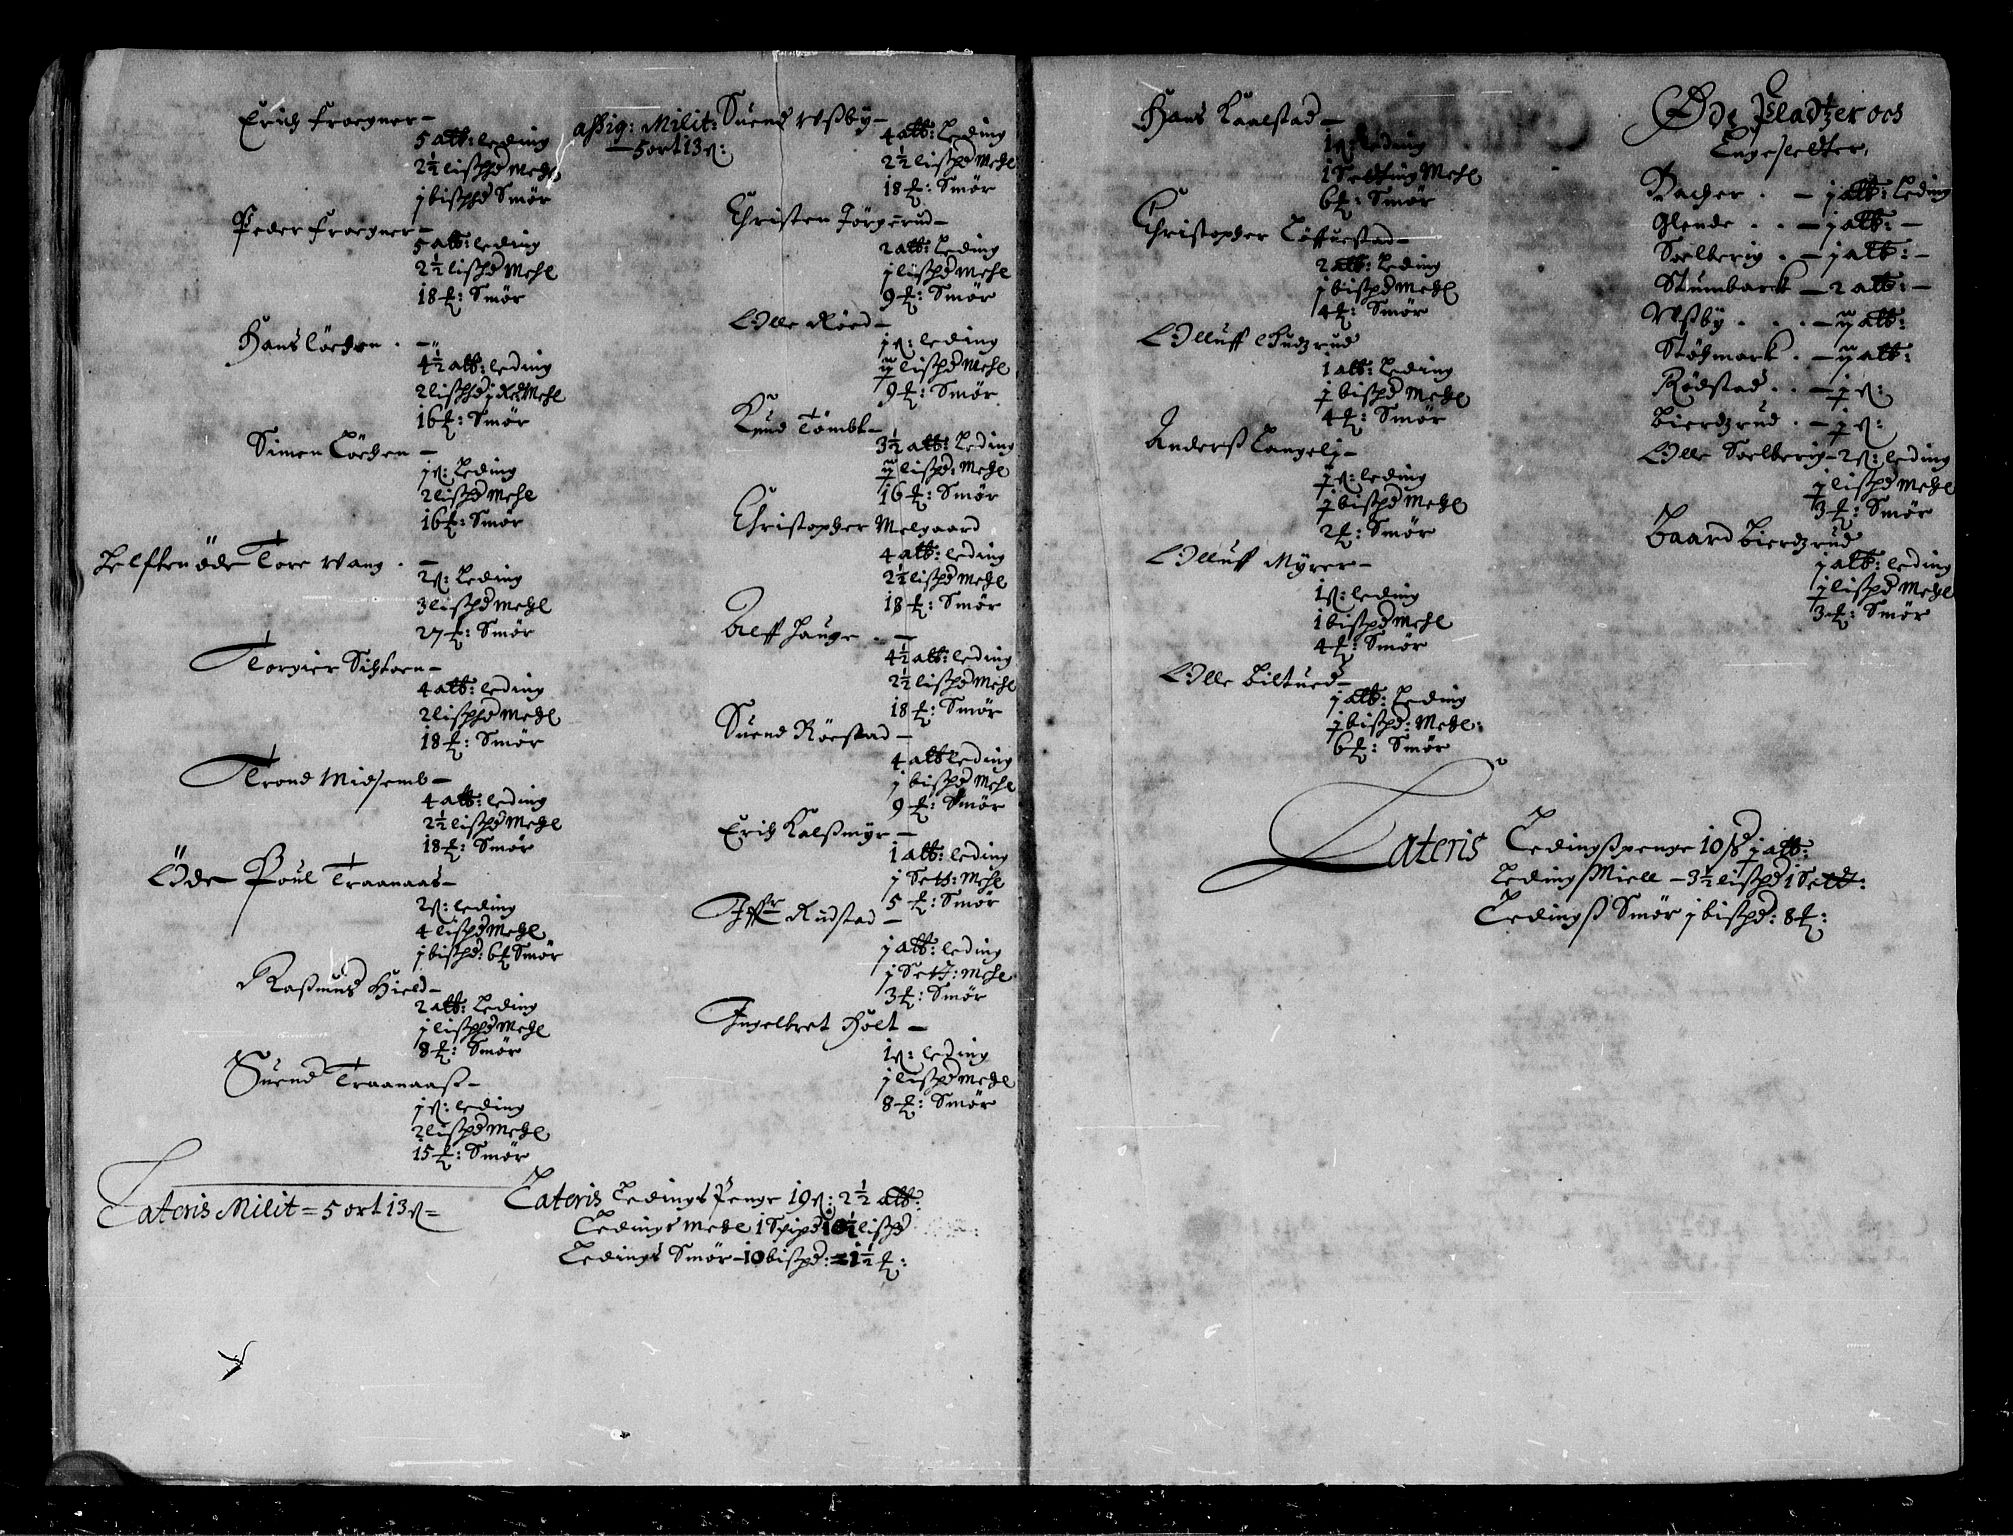 Erich Froegner –
5 alb: leding
2½ lispd Mehl
j bispd Smör
Peder Froegner –
5 alb: leding
2½ lispd Mehl
18 ℔: Smör
Hans Löchen . –
4½ alb: leding
2 lispd Mehl
16 ℔: Smör
Simen Löchen –
j ß: Leding
2 lispd Mehl
16 ℔: Smör
Helften öde Tore Wang . –
2 ß: Leding
3 lispd Mehl
27 ℔: Smör
Torgier Sichtoen –
4 alb: leding
2 lispd Mehl
18 ℔: Smör
Trond Midsemb –
4 alb: leding
2½ lispd Mehl
18 ℔: Smör
Öde Poul Traanaas –
2 ß: leding
4 lispd Mehl
j bispd: 6 ℔ Smör
Rasmus Hield –
2 alb: Leding
j lispd Mehl
8 ℔: Smör
Suend Traanaaß –
j ß: leding
2 lispd Mehl
15 ℔: Smör
Lateris Milit = 5 ort 13 ß =
assig: Milit:
– 5 ort 13 ß:
Suend Wßby –
4 alb: Leding
2½ lispd Mehl
18 ℔: Smör
Christen Jörgerud –
2 alb: Leding
j lispd Mehl
9 ℔: Smör
Olle Röed –
j ß: leding
lispd Mehl
9 ℔: Smör
Knud Tömbt –
3½ alb: Leding
lispd: Mehl
16 ℔: Smör
Christopher Melgaard
4 alb: leding
2½ lispd Mehl
18 ℔: Smör
Alff Hauge . –
4½ alb: leding
2½ lispd Mehl
18 ℔: Smör
Suend Röestad –
4 alb leding
j bispd Mehl
9 ℔: Smör
Erich Kalßmyr –
1 alb: leding
j Seth: Mehl
5 ℔: Smör
Iffr Rudstad –
j alb: leding
j Seth: Mehl
3 ℔: Smör
Ingelbret Holt –
1 ß: leding
j lispd Mehl
8 ℔: Smör
Lateris Ledings Penge 19 ß: 2½ alb:
Ledings Mehl 1 Skipd 10½ lispd
Ledings Smör – 10 bispd: = 1½ ℔:
Hans Kaalstad –
1 ß: leding
1 Sedting Mehl
6 ℔: Smör
Christopher Löffuestad –
2 alb: Leding
j bispd Mehl
4 ℔: Smör
Olluff Budzrud
1 alb: Leding
bispd Mehl
4 ℔: Smör
Anderß Langelj –
ß: leding
bispd Mehl
2 ℔: Smör
Olluff Myrer –
1 ß: leding
1 bispd Mehl
4 ℔: Smör
Olle Biltued –
j alb: Leding
bispd: Mehl:
6 ℔: Smör
Lateris Ledingßpenge 10 ß alb:
Ledingß Miell – 3½ lispd 1 Sett:
Ledingß Smör j bispd: 8 ℔:
Öde Pladtzer och
Engesledter,
Bacher . – j alb: Leding
Glende . . – j alb: –
Soelberig . – j alb: –
Stumbarck – 2 alb: –
Wßby . . . – alb:
Stöhmark . – alb:
Rödstad . . – ß:
Bierdzrud . – ß:
Olle Soelberig – 2 ß: leding
lispd Mehl
3 ℔: Smör
Baard Bierdzrud
j alb: leding
lispd Mehl
3 ℔: Smör